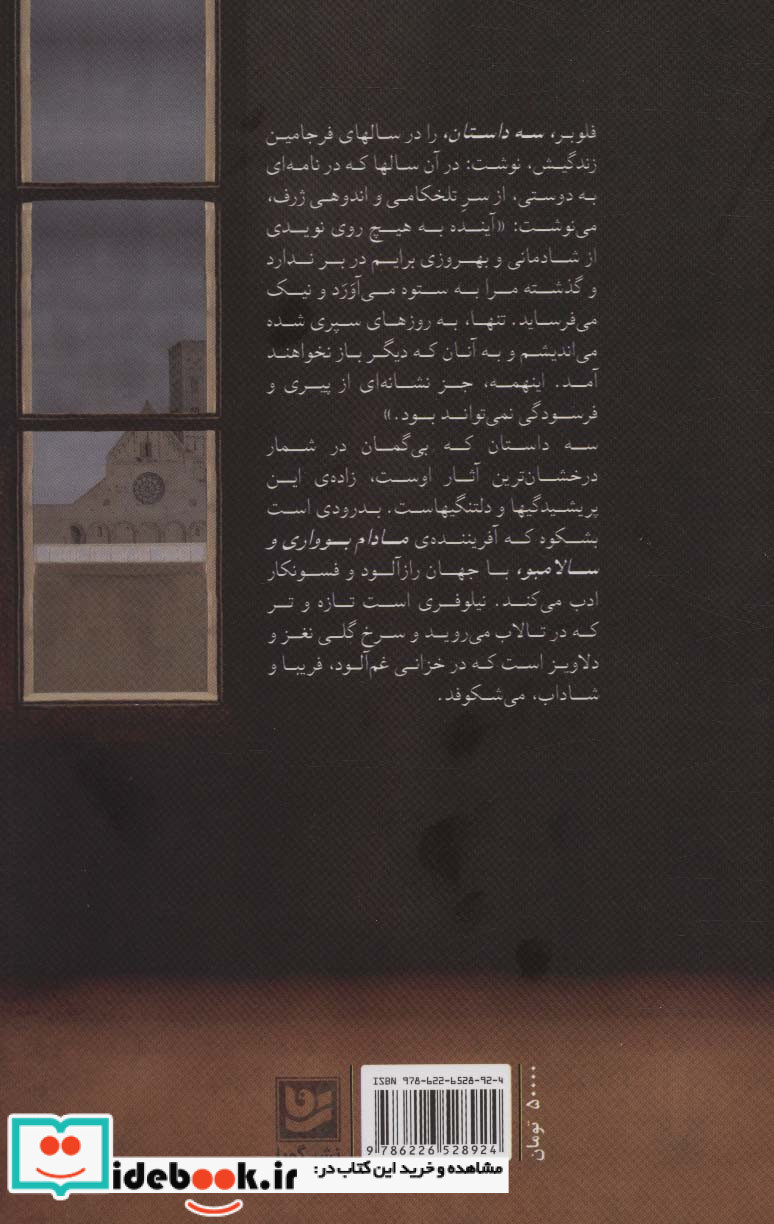 فلوبر، سه داستان، را در سالهای فرجامین
زندگیش، نوشت: در آن سالها که در نامه‌ای
به دوستی، از سرِ تلخکامی و اندوهی ژرف،
می‌نوشت: «آینده به هیچ روی نویدی
از شادمانی و بهروزی برایم در بر ندارد
و گذشته مرا به ستوه می‌آوَرَد و نیک
می‌فرساید. تنها، به روزهای سپری شده
می‌اندیشم و به آنان که دیگر باز نخواهند
آمد. اینهمه، جز نشانه‌ای از پیری و
فرسودگی نمی‌تواند بود.»
سه داستان که بی‌گمان در شمار
درخشان‌ترین آثار اوست، زاده‌ی این
پریشیدگیها و دلتنگیهاست. بدرودی است
بشکوه که آفریننده‌ی مادام بوواری و
سالامبو، با جهان رازآلود و فسونکار
ادب می‌کند. نیلوفری است تازه و تر
که در تالاب می‌روید و سرخ گلی نغز و
دلاویز است که در خزانی غم‌آلود، فریبا و
شاداب، می‌شکوفد.
ISBN 978-622-6528-92-4
9 786226 528924
۵۰۰۰۰ تومان
مشاهده و خرید این کتاب در:
idebook.ir